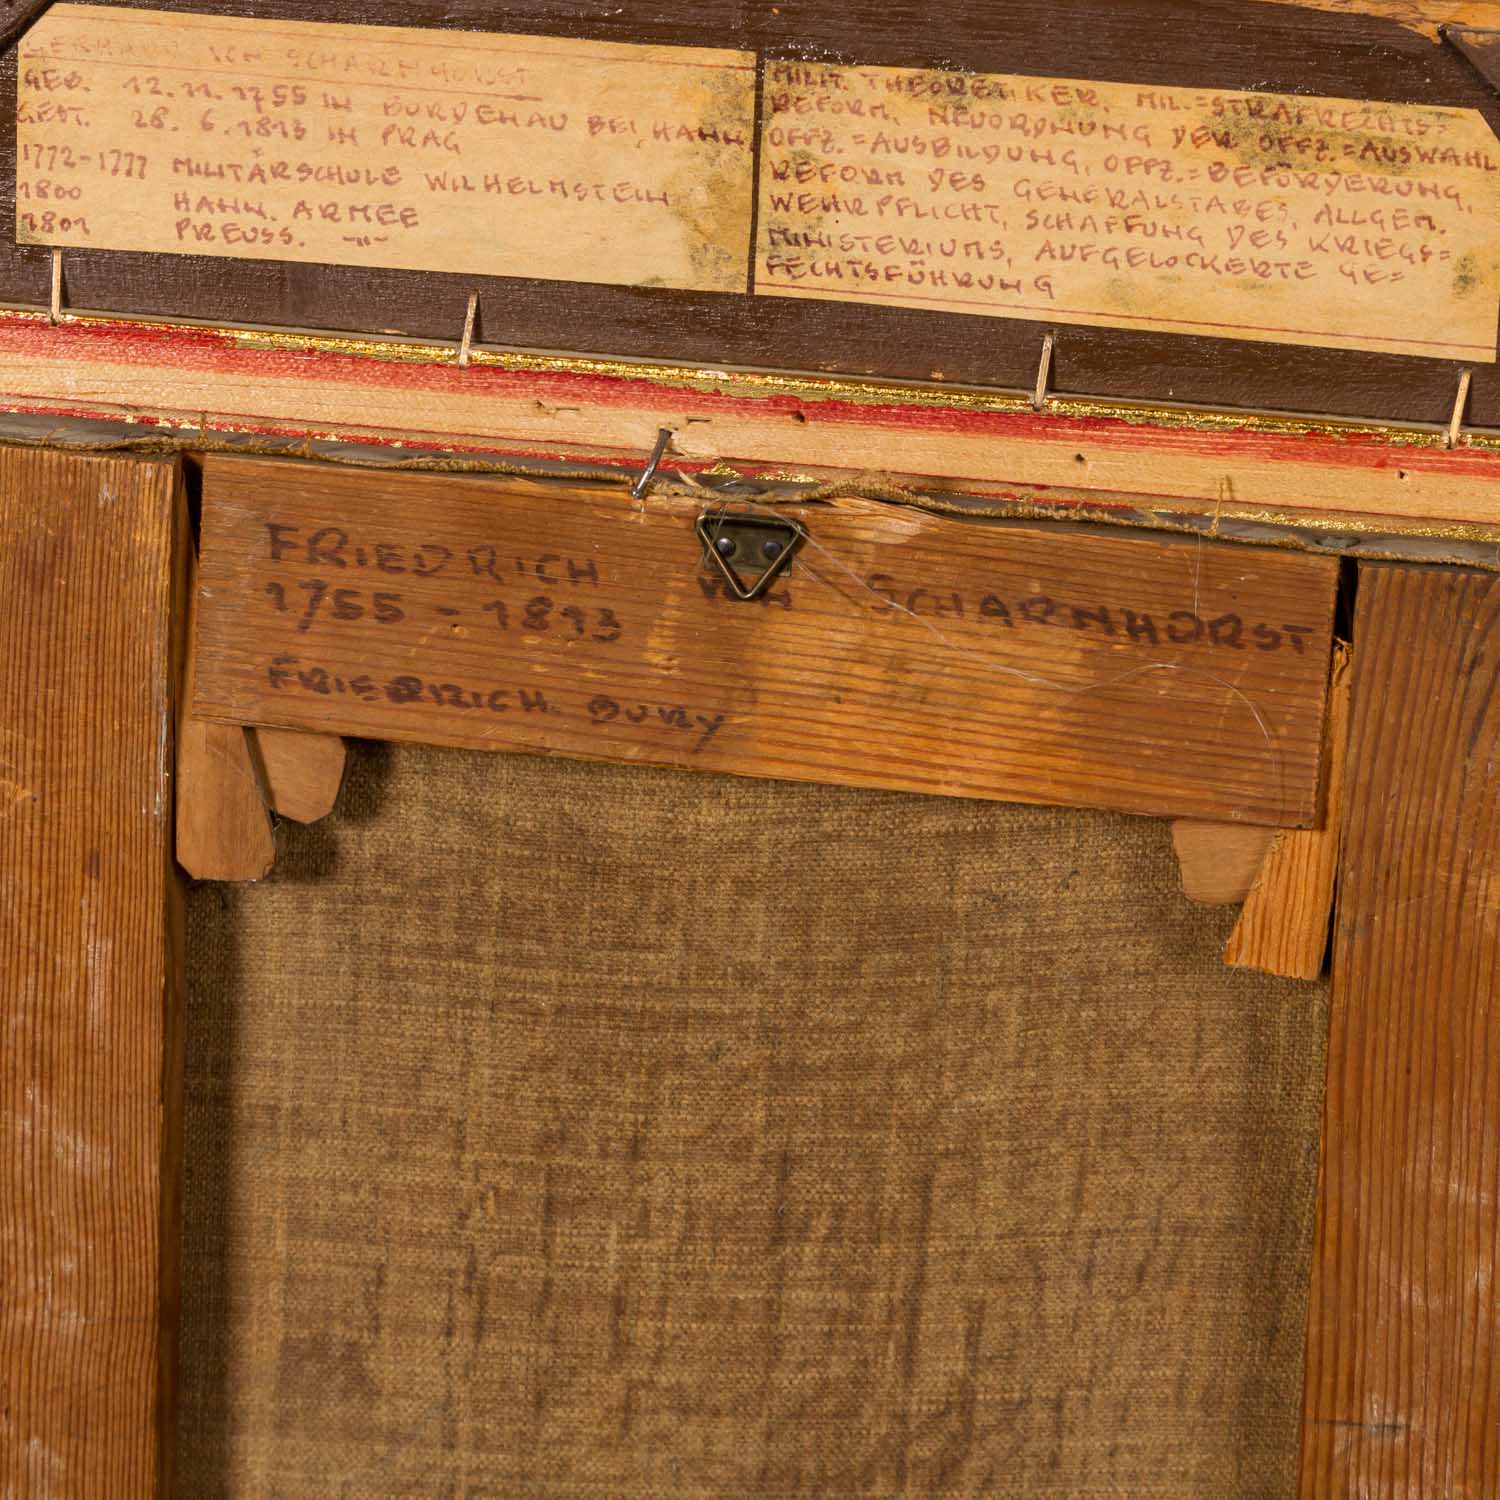 GERHARD VON SCHARNHORST
GEB. 12.11.1755 IN BORDENAU BEI HANN.
GEST. 28.6.1813 IN PRAG
1772-1777 MILITÄRSCHULE WILHELMSTEIN
1800 HANN. ARMEE
1801 PREUSS. -"-
MILIT. THEORETIKER, MIL.=STRAFRECHTS=
REFORM, NEUORDNUNG DER OFFZ.=AUSWAHL
OFFZ.=AUSBILDUNG, OFFZ.=BEFÖRDERUNG,
REFORM DES GENERALSTABES, ALLGEM.
WEHRPFLICHT, SCHAFFUNG DES KRIEGS=
MINISTERIUMS, AUFGELOCKERTE GE=
FECHTSFÜHRUNG
FRIEDRICH VON SCHARNHORST
1755 - 1813
FRIEDRICH BURY